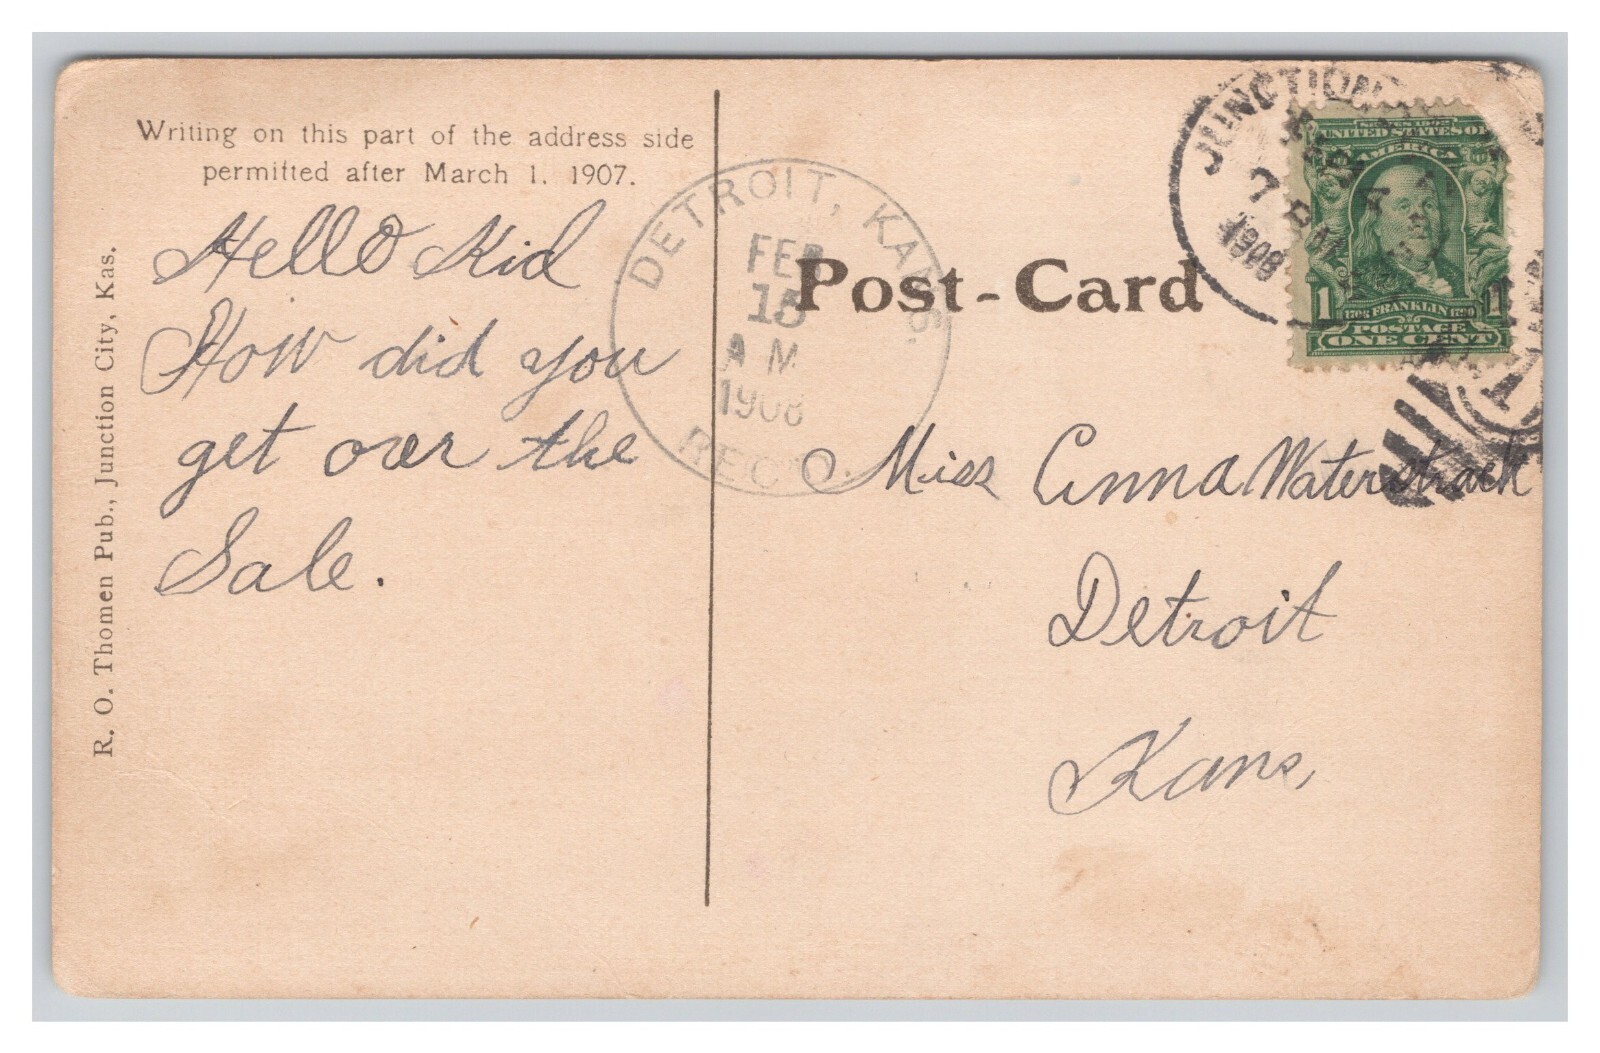 Writing on this part of the address side
permitted after March 1. 1907.
Hello Kid
How did you
get over the
Sale.
R. O. Thomen Pub., Junction City, Kas.
DETROIT, KANS.
FEB
15
A M
1908
REC'D.
Post-Card
JUNCTION
7 PM
1908
SERIES 1902
UNITED STATES OF
AMERICA
1 1
1706 FRANKLIN 1790
POSTAGE
ONE CENT
1
Miss Anna Waterstrack
Detroit
Kans,